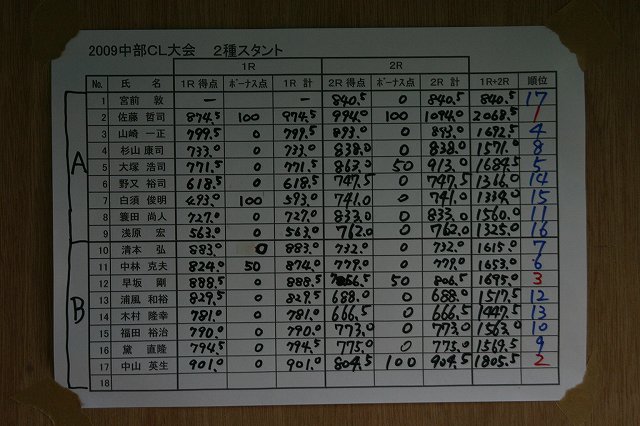 2009中部CL大会 2種スタント
1R 2R
No. 氏 名 1R 得点 ボーナス点 1R 計 2R 得点 ボーナス点 2R 計 1R+2R 順位
A
1 宮前 敦 - - 840.5 0 840.5 840.5 17
2 佐藤 哲司 874.5 100 974.5 994.0 100 1094.0 2068.5 1
3 山崎 一正 799.5 0 799.5 893.0 0 893.0 1692.5 4
4 杉山 康司 733.0 0 733.0 838.0 0 838.0 1571.0 8
5 大塚 浩司 771.5 0 771.5 863.0 50 913.0 1684.5 5
6 野又 裕司 618.5 0 618.5 747.5 0 747.5 1366.0 14
7 白須 俊明 493.0 100 593.0 741.0 0 741.0 1334.0 15
8 簑田 尚人 727.0 0 727.0 833.0 0 833.0 1560.0 11
9 浅原 宏 563.0 0 563.0 762.0 0 762.0 1325.0 16
B
10 清本 弘 883.0 0 883.0 732.0 0 732.0 1615.0 7
11 中林 克夫 824.0 50 874.0 779.0 0 779.0 1653.0 6
12 早坂 剛 888.5 0 888.5 50 806.5 1695.0 3
13 浦風 和裕 829.5 0 829.5 688.0 0 688.0 1517.5 12
14 木村 隆幸 781.0 0 781.0 666.5 0 666.5 1447.5 13
15 福田 裕治 790.0 0 790.0 773.0 0 773.0 1563.0 10
16 黛 直隆 794.5 0 794.5 775.0 0 775.0 1569.5 9
17 中山 英生 901.0 0 901.0 804.5 100 904.5 1805.5 2
18